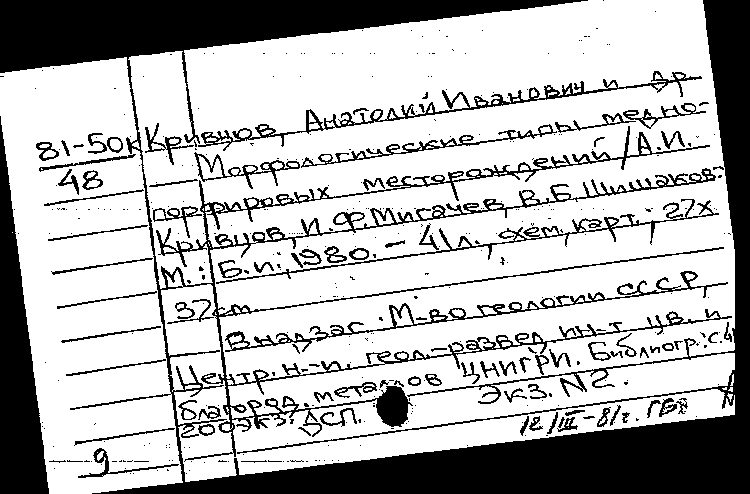 81-50к
48
Кривцов, Анатолий Иванович и др.
Морфологические типы медно-
порфировых месторождений / А.И.
Кривцов, И.Ф. Мигачев, В.Б. Шишаков.
М.: Б.и., 1980. – 41 л., схем, карт.; 27х
37см.
В надзаг. М-во геологии СССР,
Центр. н.-и. геол.-развед. ин-т цв. и
благород. металлов ЦНИГРИ. Библиогр.: с.4
200экз. ДСП. Экз. N2.
12/III-81г.
9